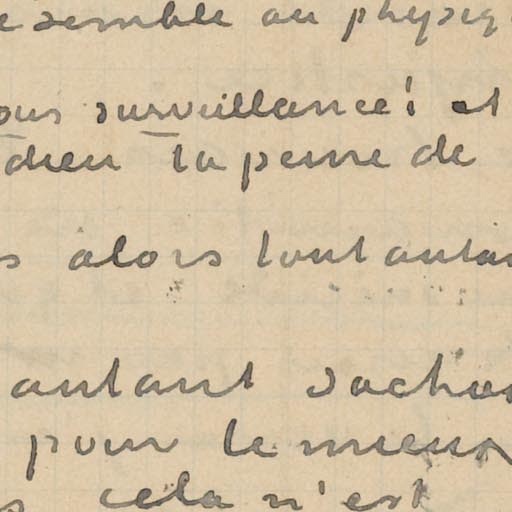 esemble au physiq
ous surveillance! et
dieu la peine de
s alors tout autan
autant sachon
pour le mieux
s cela n'est